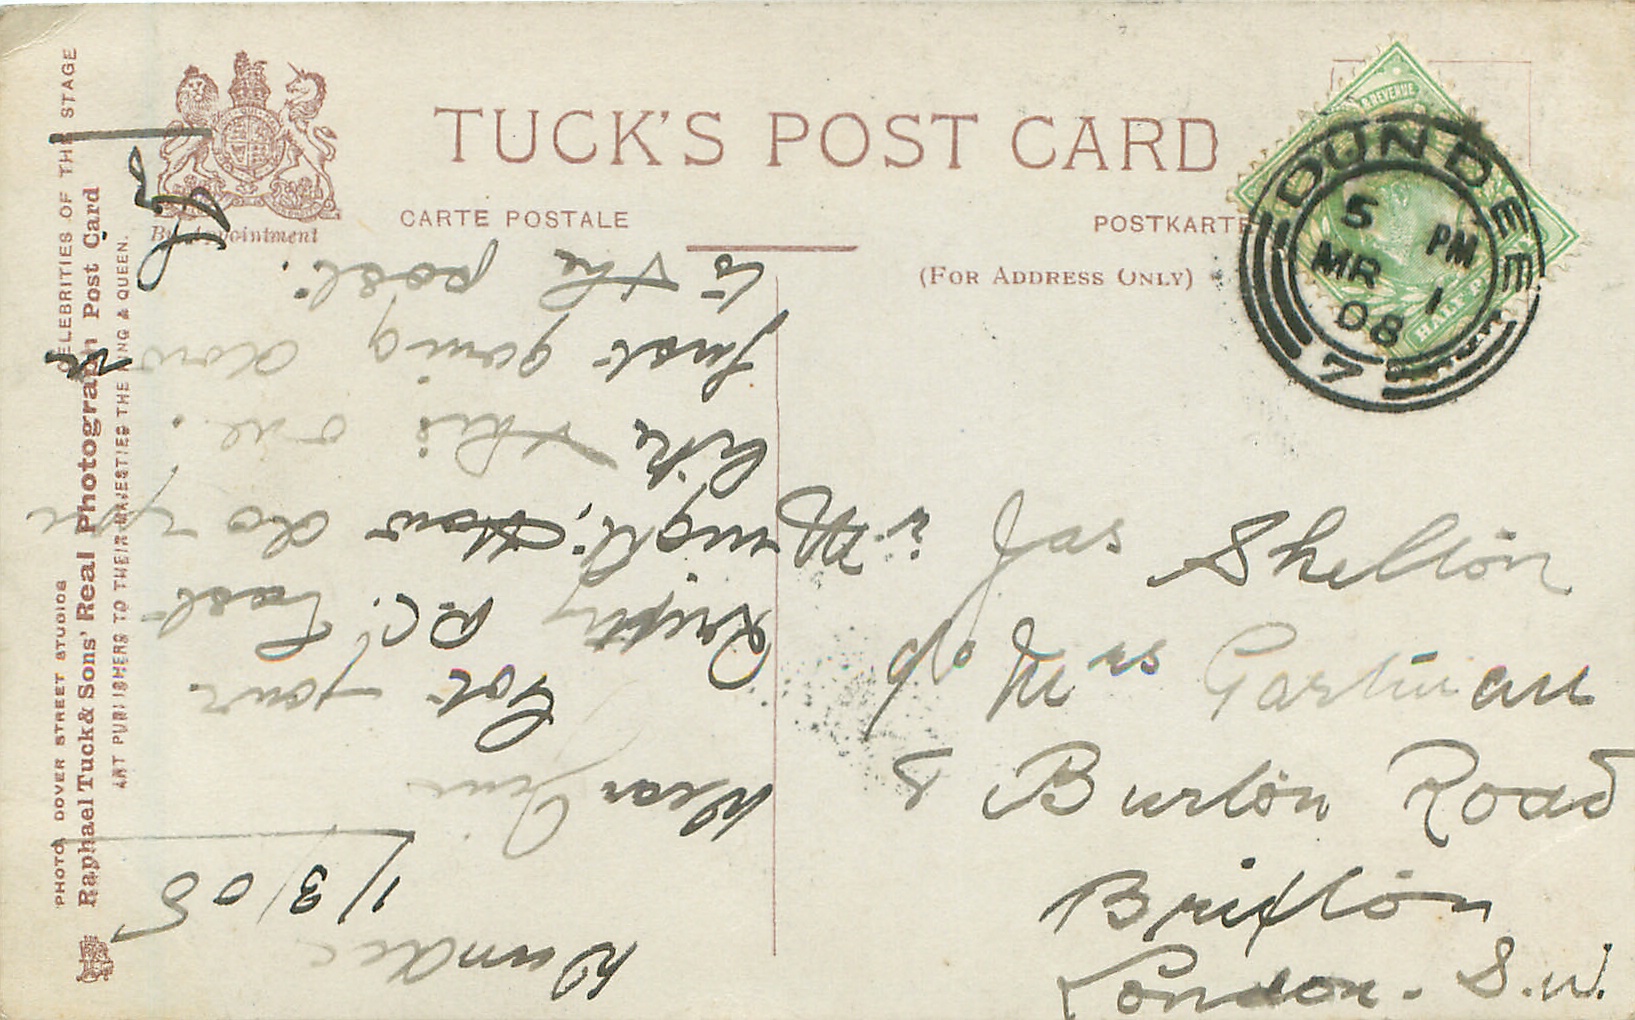 TUCK'S POST CARD
CARTE POSTALE
POSTKARTE
(FOR ADDRESS ONLY)
By Appointment
PHOTO, DOVER STREET STUDIOS
CELEBRITIES OF THE STAGE
Raphael Tuck & Sons' Real Photograph Post Card
ART PUBLISHERS TO THEIR MAJESTIES THE KING & QUEEN.
& REVENUE
HALF PENNY
DUNDEE
5 PM
MR 1
08
7
Mr Jas Shelton
c/o Mrs Gartman
8 Burton Road
Brixton
London. S.W.
Dundee
1/3/08
Dear
Got your
P.C. Last
night, How do you
like this one.
Just going down
to the post.